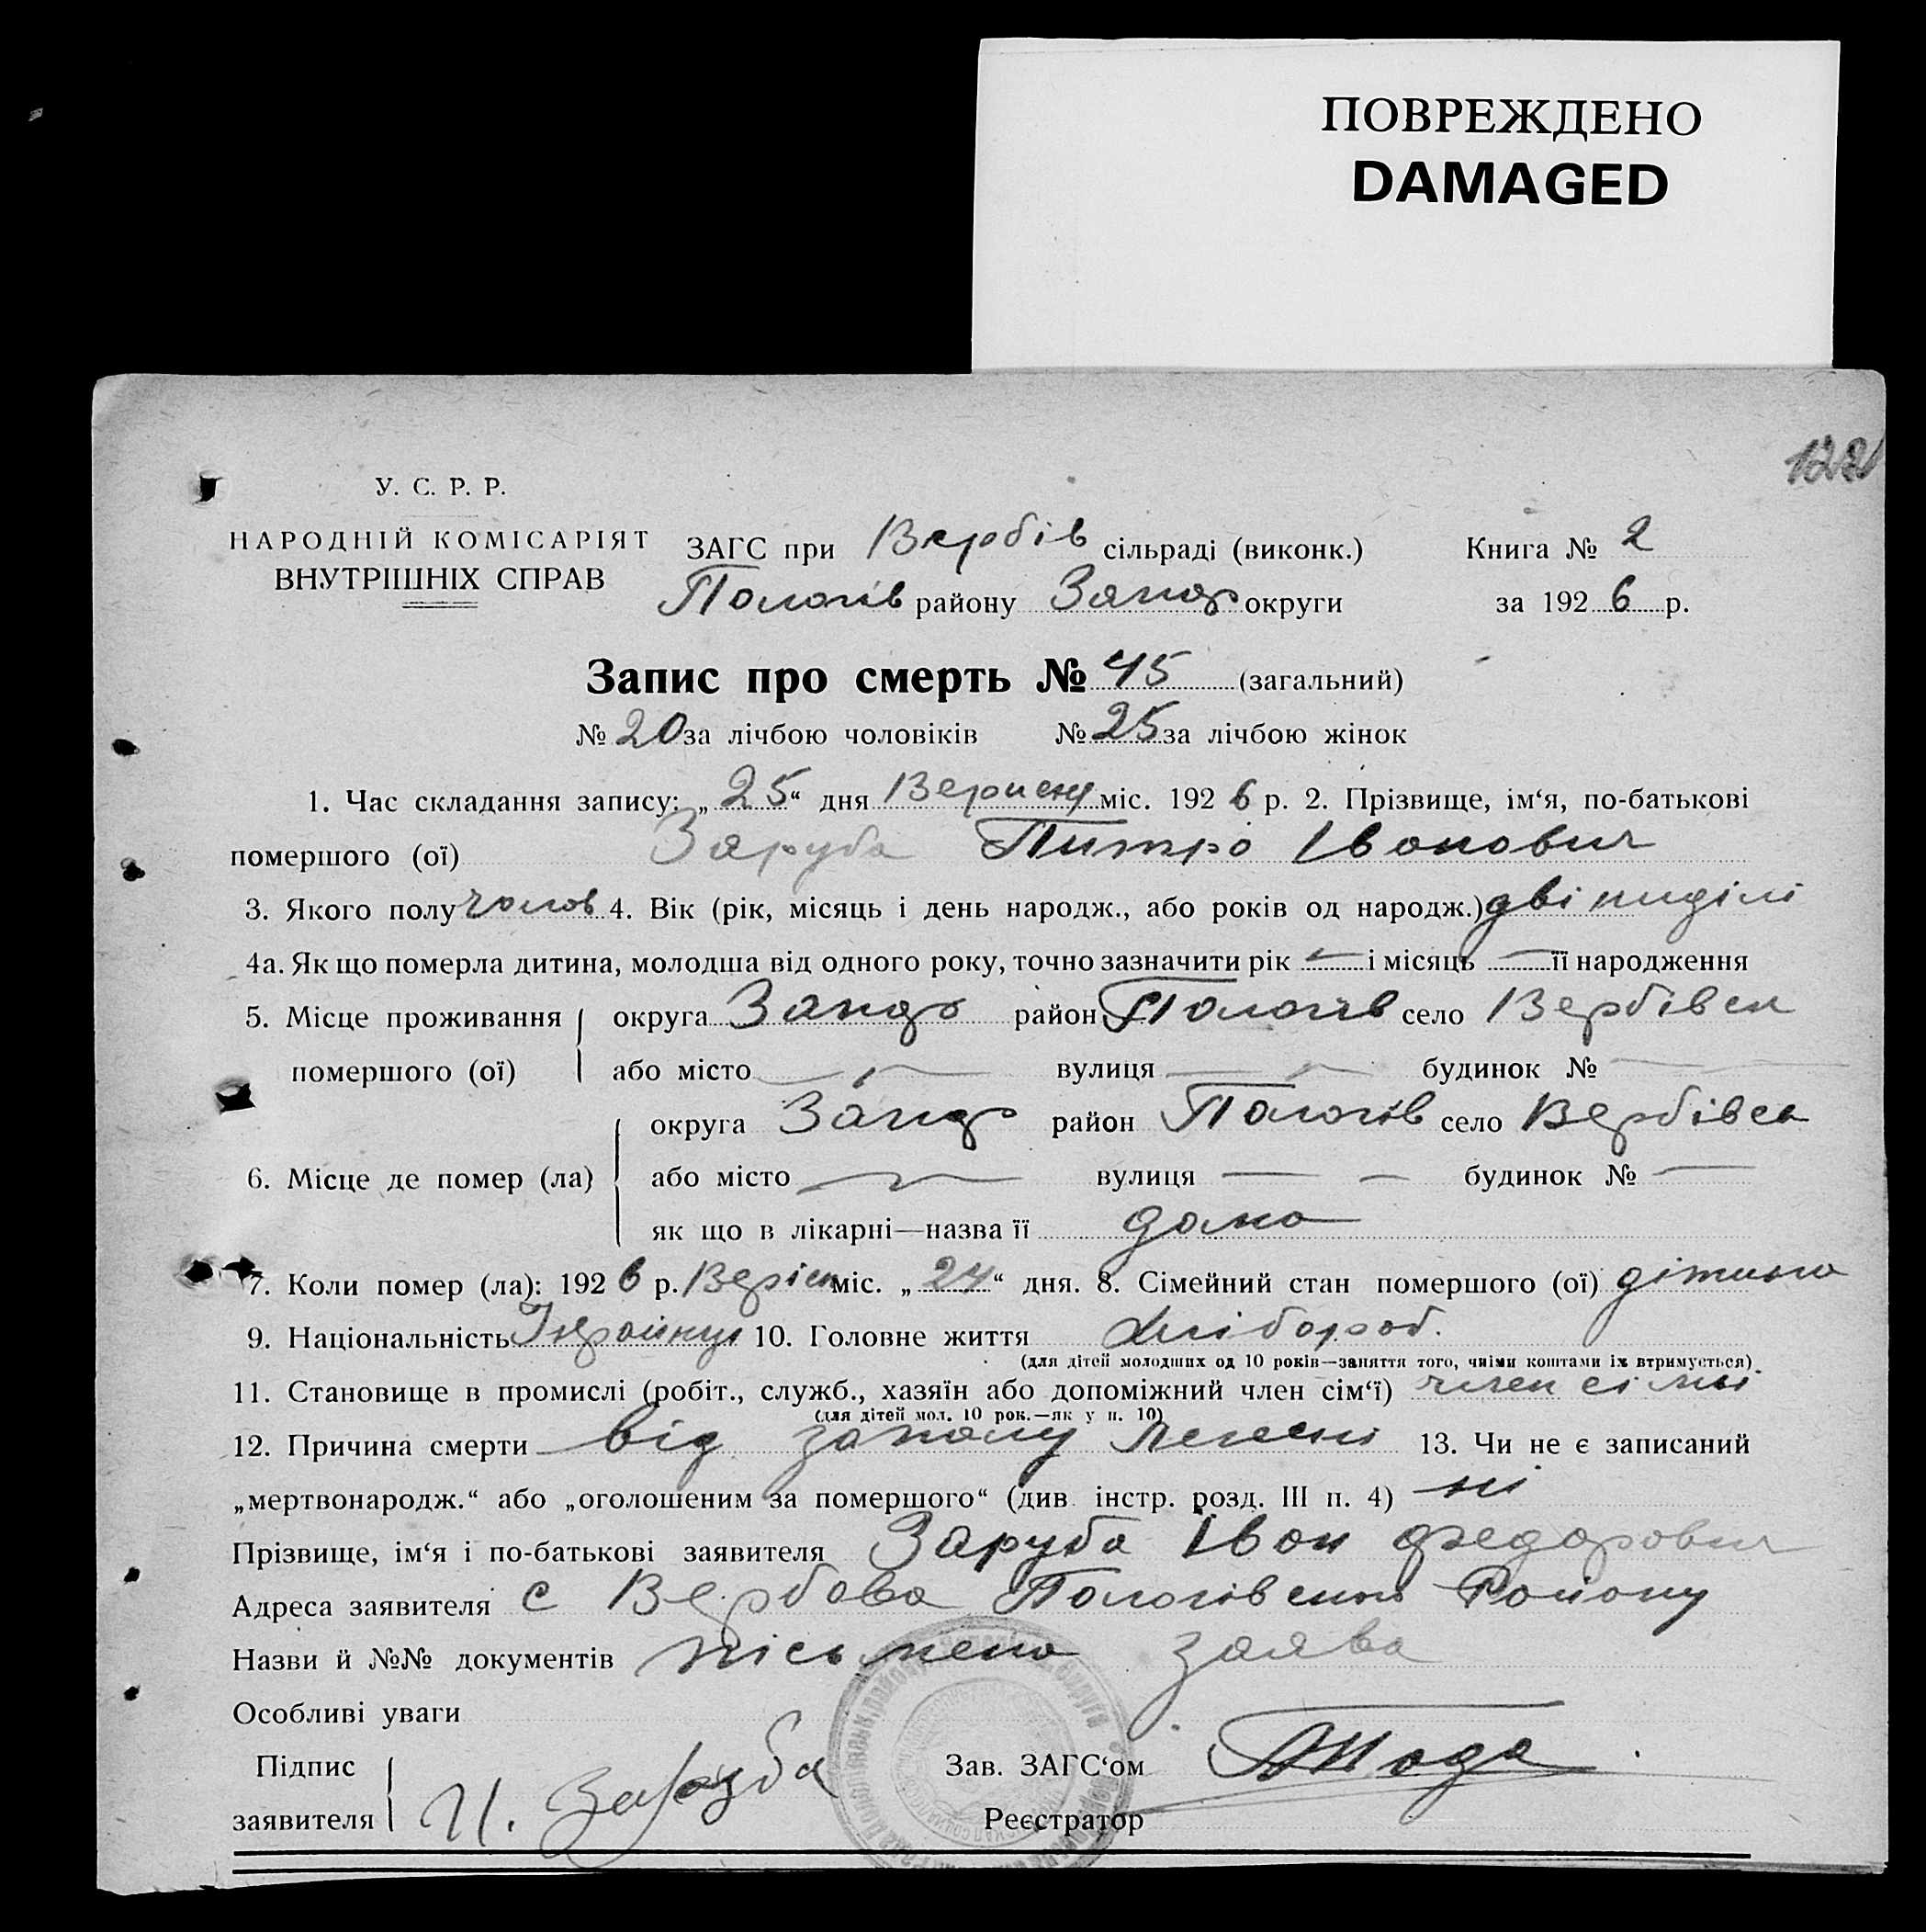 ПОВРЕЖДЕНО
DAMAGED
122
У. С. Р. Р.
НАРОДНІЙ КОМІСАРІЯТ
ВНУТРІШНІХ СПРАВ
ЗАГС при Вербів сільраді (виконк.) Книга № 2
Пологів району Запор округи за 1926 р.
Запис про смерть № 45 (загальний)
№ 20 за лічбою чоловіків № 25 за лічбою жінок
1. Час складання запису: „25“ дня Вересня міс. 1926 р. 2. Прізвище, ім‘я, по-батькові
помершого (ої) Заруба Питро Іванович
3. Якого полу чолов 4. Вік (рік, місяць і день народж., або років од народж.) дві ниділі
4а. Як що померла дитина, молодша від одного року, точно зазначити рік — і місяць — її народження
5. Місце проживання помершого (ої) округа Запор район Пологів село Вербівск
або місто — вулиця — будинок № —
6. Місце де помер (ла) округа Запор район Пологів село Вербівск
або місто — вулиця — — будинок № —
як що в лікарні—назва її дома
7. Коли помер (ла): 1926 р. Верісн міс. „24“ дня. 8. Сімейний стан помершого (ої) дітина
9. Національність 10. Головне життя хлібороб.
(для дітей молодших од 10 років—заняття того, чиїми коштами їх втримується)
11. Становище в промислі (робіт., служб., хазяїн або допоміжний член сім‘ї) член сімьі
(для дітей мол. 10 рок.—як у п. 10)
12. Причина смерти від запалу легень 13. Чи не є записаний
„мертвонародж.“ або „оголошеним за помершого“ (див. інстр. розд. III п. 4) ні
Прізвище, ім‘я і по-батькові заявителя Заруба Іван Федорович
Адреса заявителя с Вербова Пологівськ Району
Назви й №№ документів письмена заява
Особливі уваги
Підпис заявителя И. Заруба Зав. ЗАГС‘ом
Реєстратор